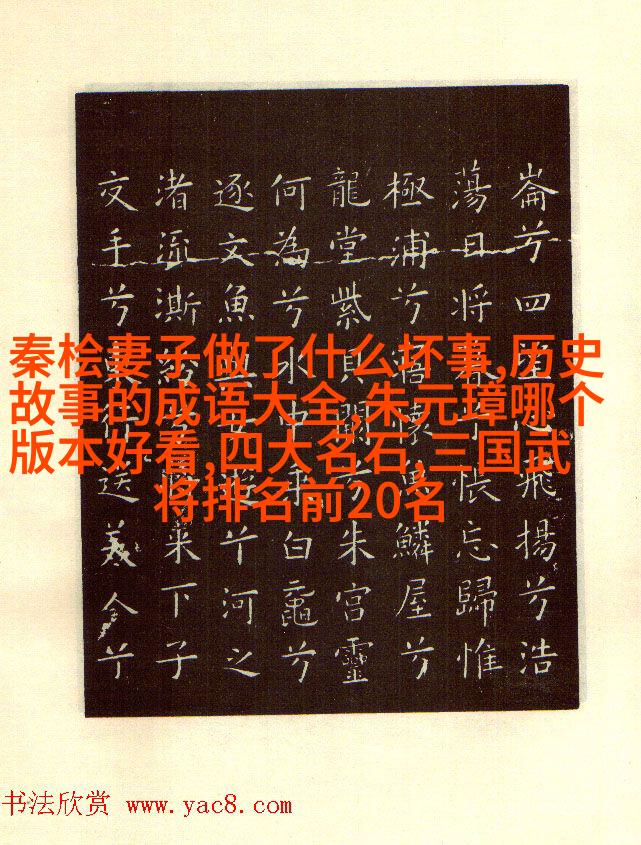 崙兮四望心飛揚兮浩
蕩日將暮兮悵忘歸惟
極浦兮寤懷魚鱗屋兮
龍堂紫貝闕兮朱宮靈
何為兮水中乘白黿兮
逐文魚與女遊兮河之
渚流澌紛兮將來下子
交手兮東行送美人兮
秦桧妻子做了什么坏事,历史
故事的成语大全,朱元璋哪个
版本好看,四大名石,三国武
将排名前20名
书法欣赏 www.yac8.com